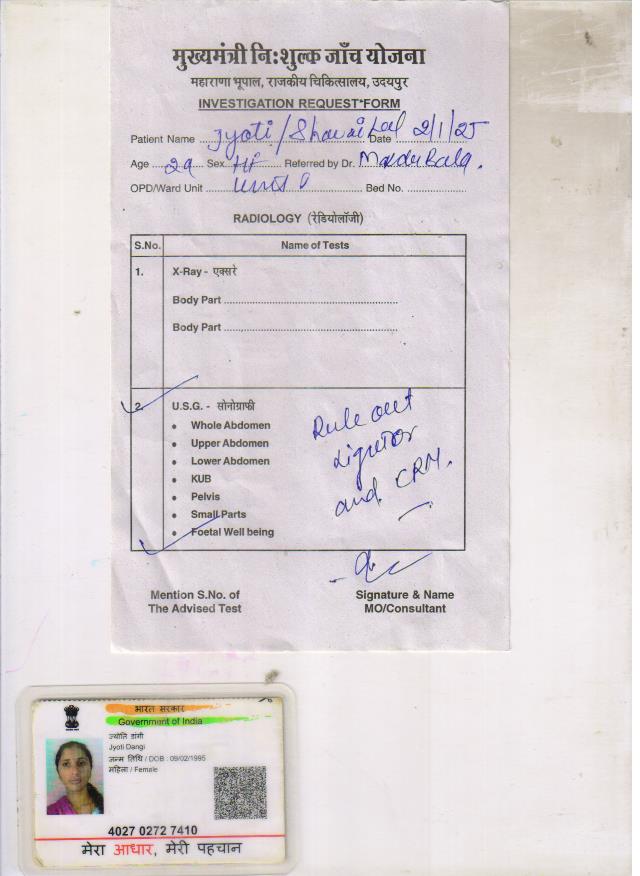 मुख्यमंत्री नि:शुल्क जाँच योजना
महाराणा भूपाल, राजकीय चिकित्सालय, उदयपुर
INVESTIGATION REQUEST FORM
Patient Name Jyoti / Date 2/1/25
Age 29 Sex Referred by Dr. Madhu Bala.
OPD/Ward Unit Bed No.
RADIOLOGY (रेडियोलॉजी)
S.No. Name of Tests
1. X-Ray - एक्सरे
Body Part
Body Part
2. U.S.G. - सोनोग्राफी
• Whole Abdomen
• Upper Abdomen
• Lower Abdomen
• KUB
• Pelvis
• Small Parts
• Foetal Well being
Rule out
and CRM.
Mention S.No. of
The Advised Test
Signature & Name
MO/Consultant
भारत सरकार
Government of India
ज्योति डांगी
Jyoti Dangi
जन्म तिथि / DOB : 09/02/1995
महिला / Female
4027 0272 7410
मेरा आधार, मेरी पहचान